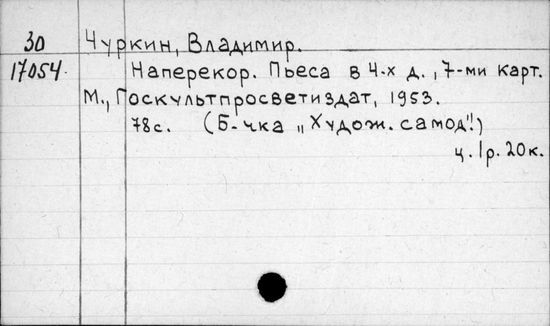 30 Чуркин, Владимир.
17054. Наперекор. Пьеса в 4-х д., 7-ми карт.
М., Госкультпросветиздат, 1953.
78с. (Б-чка „Худож. самод"!)
ц. 1р. 20к.